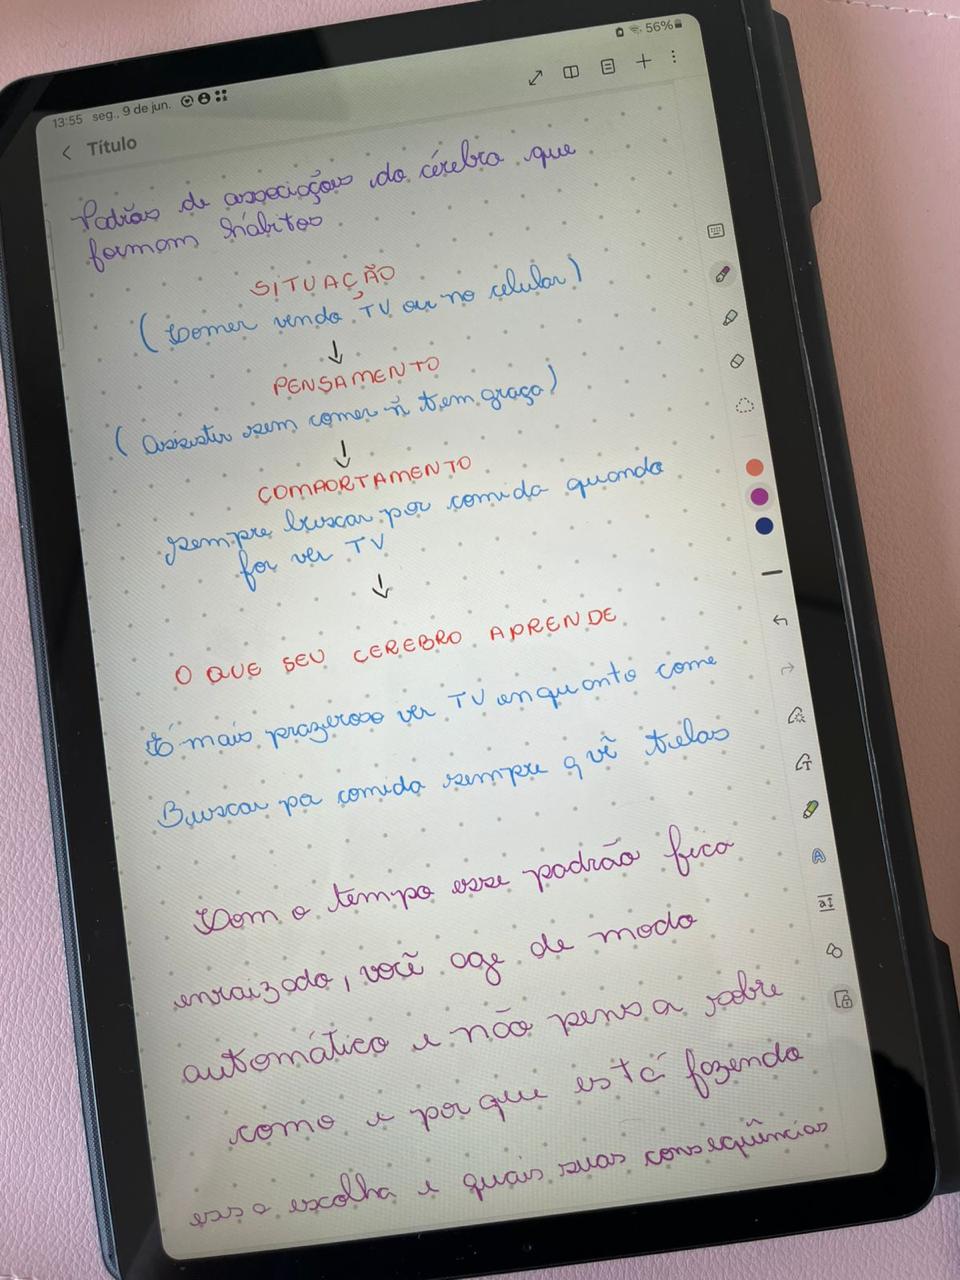 13:55 seg., 9 de jun.
56%
Título
Padrões de associações do cérebro que
formam hábitos
SITUAÇÃO
(Comer vendo TV ou no celular)
PENSAMENTO
(assistir sem comer ñ tem graça)
COMPORTAMENTO
sempre buscar por comida quando
for ver TV
O QUE SEU CEREBRO APRENDE
É mais prazeroso ver TV enquanto come
Buscar por comida sempre q vê telas
Com o tempo esse padrão fica
enraizado, você age de modo
automático e não pensa sobre
como e por que está fazendo
essa escolha e quais suas conseqüências